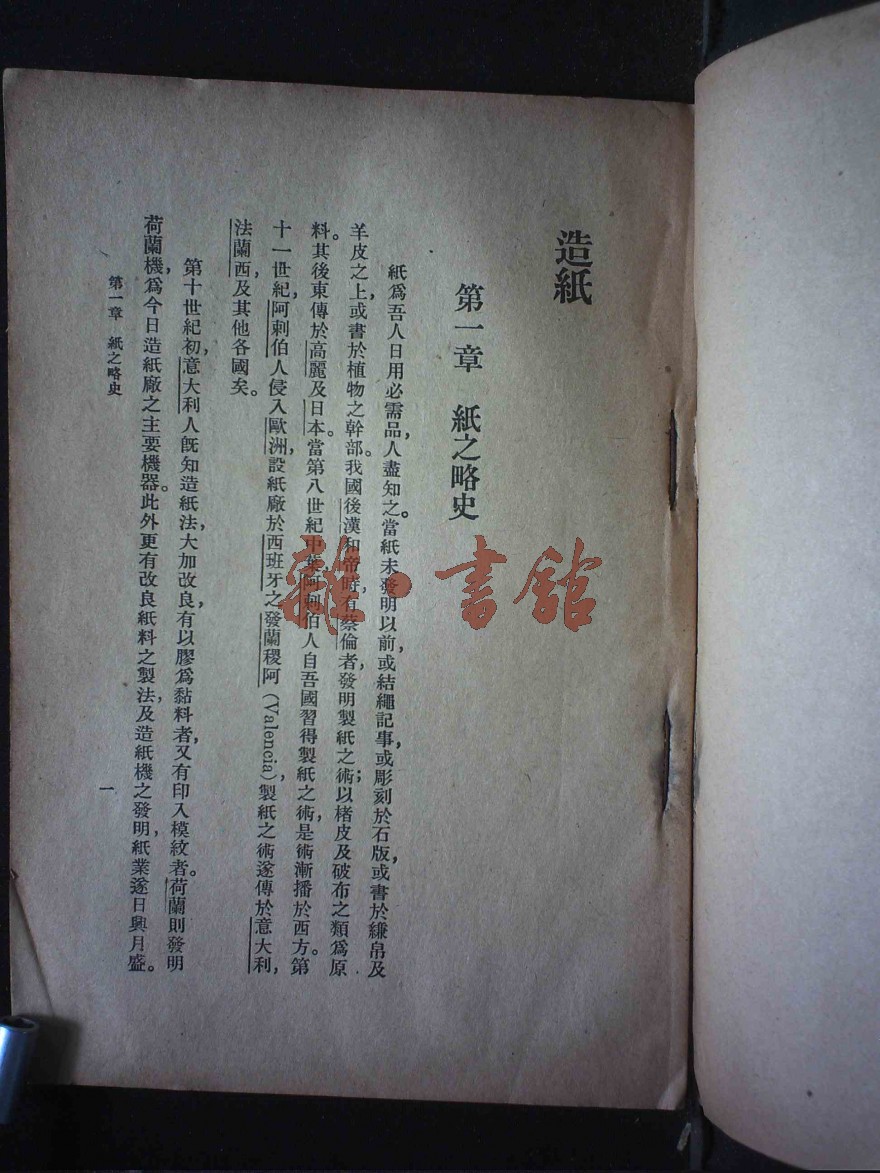 造紙
第一章　紙之略史
紙爲吾人日用必需品，人盡知之。當紙未發明以前，或結繩記事，或彫刻於石版，或書於縑帛及
羊皮之上，或書於植物之幹部。我國後漢和帝時，有蔡倫者，發明製紙之術；以楮皮及破布之類爲原
料。其後東傳於高麗及日本。當第八世紀中葉，阿剌伯人自吾國習得製紙之術，是術漸播於西方。第
十一世紀，阿剌伯人侵入歐洲，設紙廠於西班牙之發蘭稷阿（Valencia），製紙之術遂傳於意大利，
法蘭西，及其他各國矣。
第十世紀初，意大利人既知造紙法，大加改良，有以膠爲黏料者，又有印入模紋者。荷蘭則發明
荷蘭機，爲今日造紙廠之主要機器。此外更有改良紙料之製法，及造紙機之發明，紙業遂日興月盛。
第一章　紙之略史
一
雜·書館